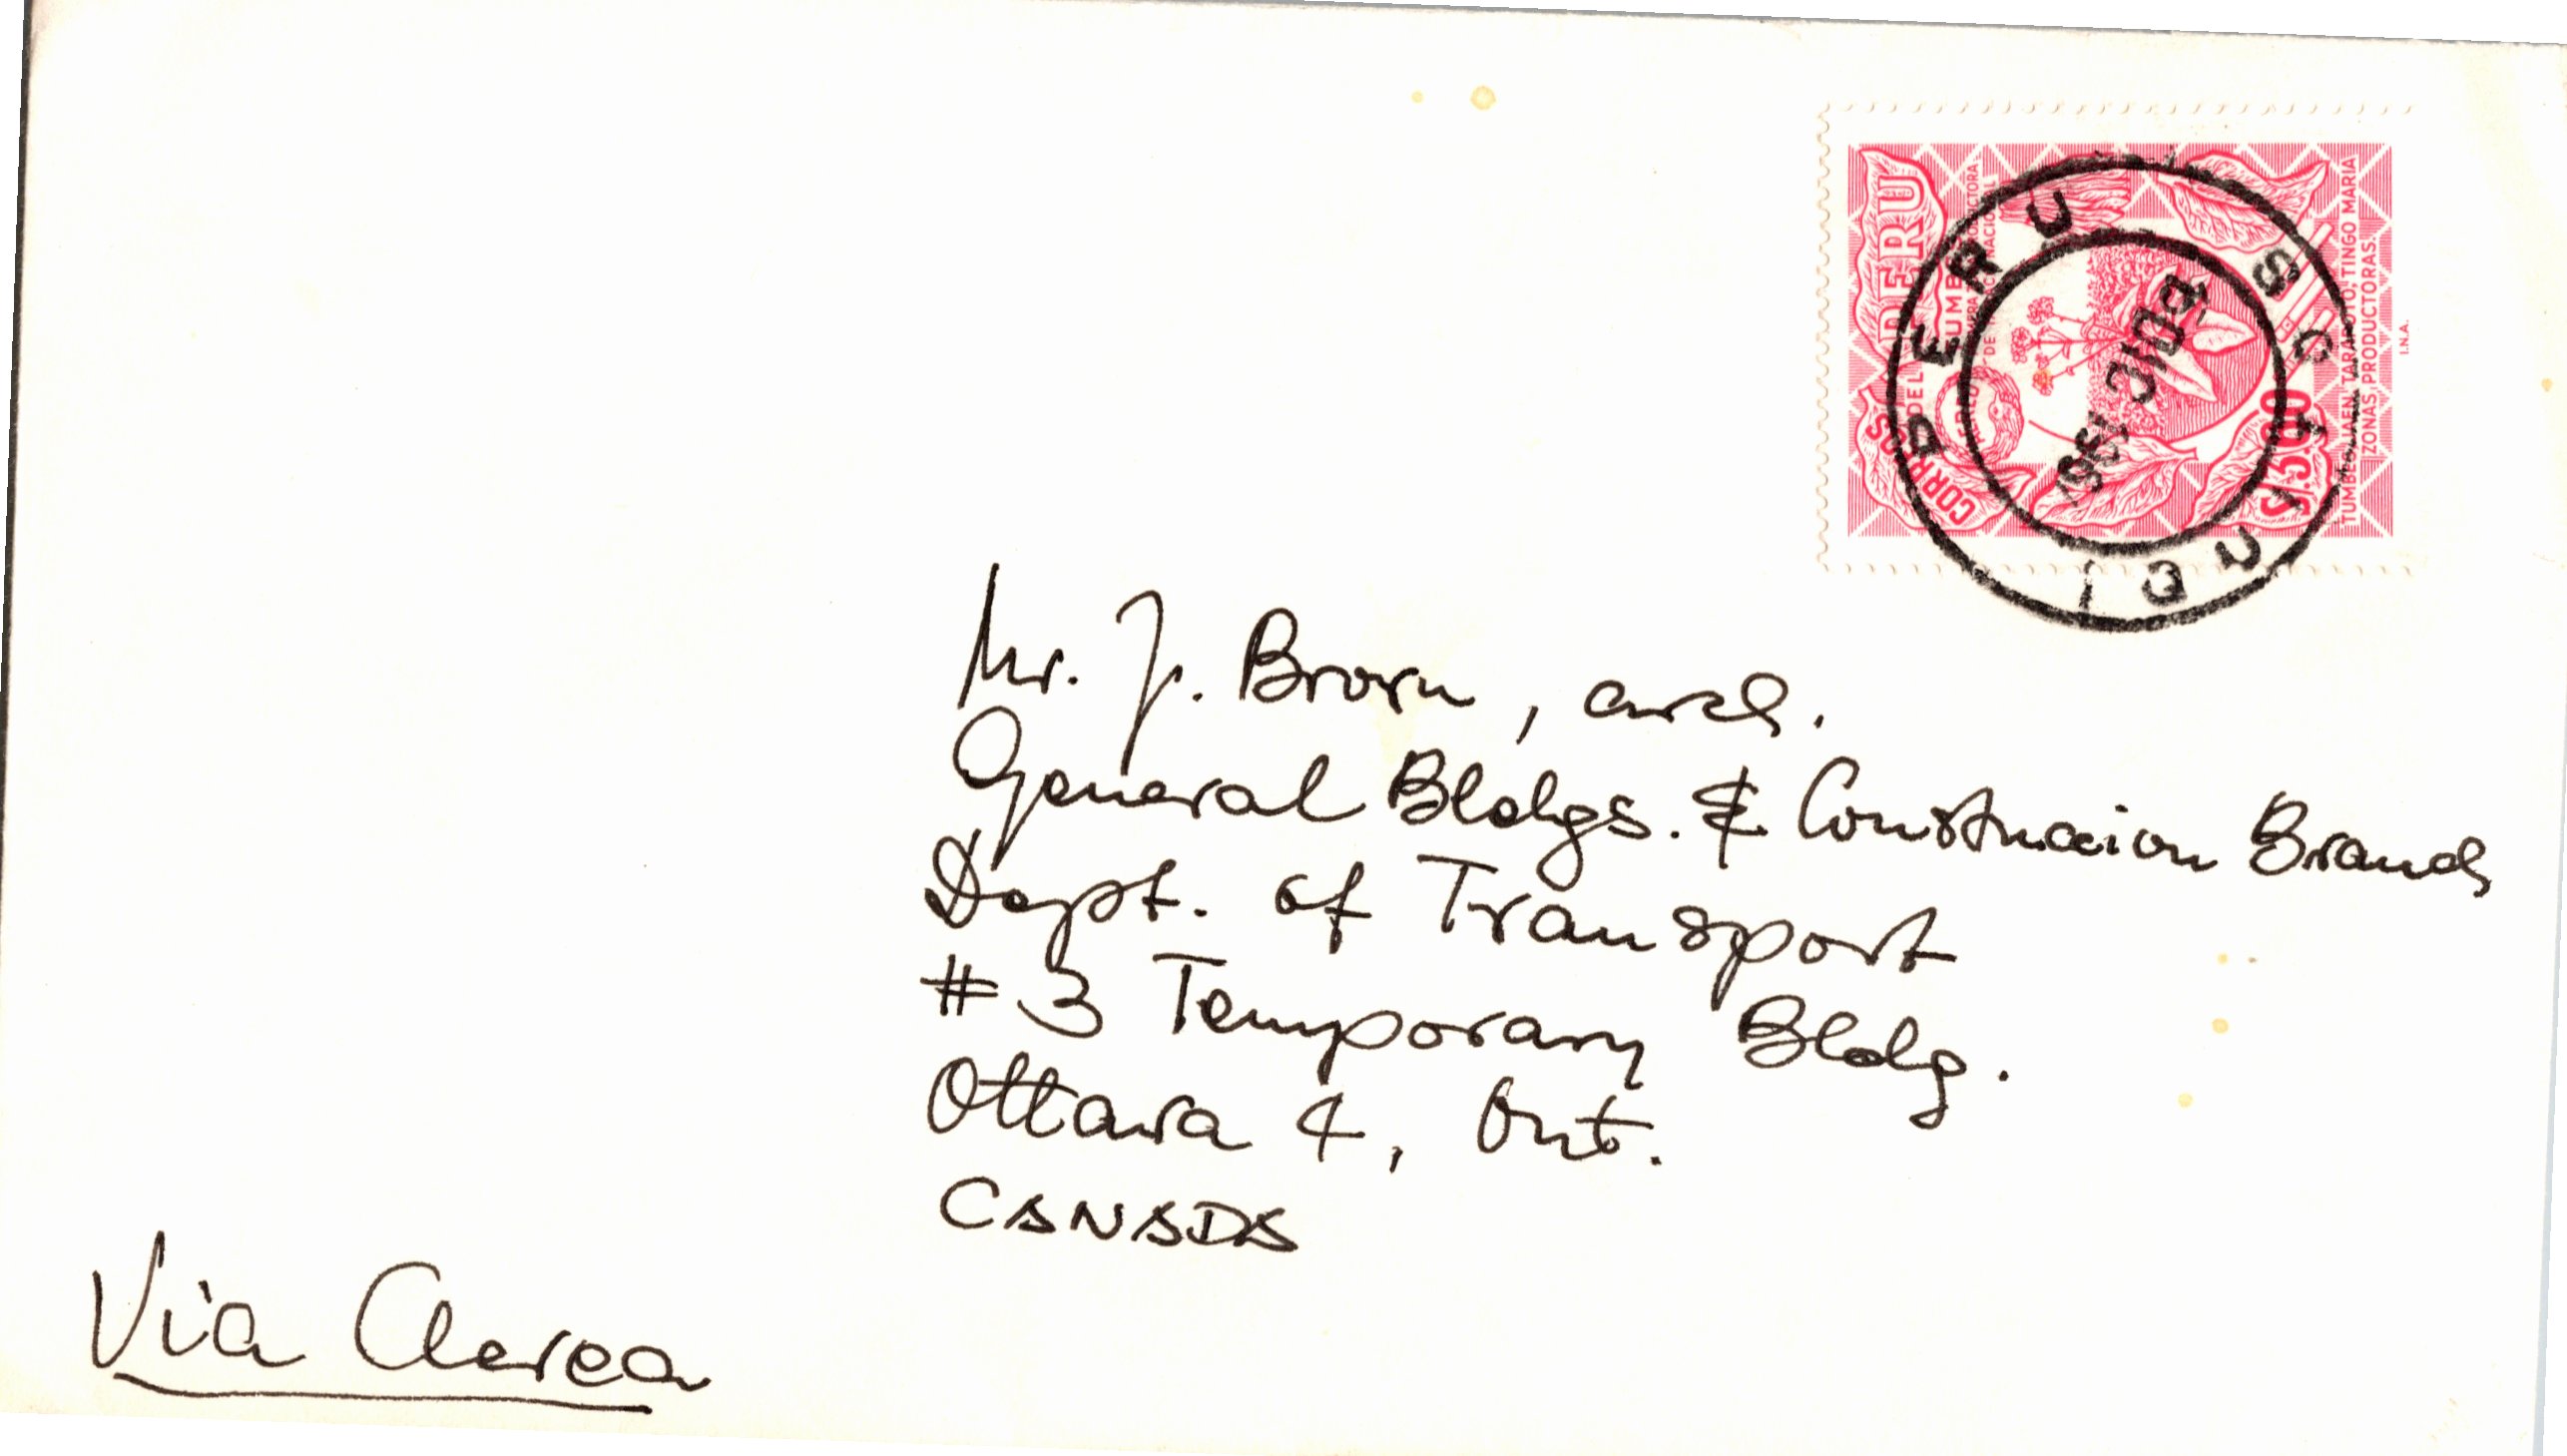 Mr. J. Brown, arch.
General Bldgs. & Construccion Branch
Dept. of Transport
# 3 Temporary Bldg.
Ottawa 4, Ont.
CANADA
Via Aerea
CORREOS DEL PERU
S/.3.00
TUMBES, JAEN, TARAPOTO, TINGO MARIA
ZONAS PRODUCTORAS.
I.N.A.
IQUITOS
PERU
DIC 1961